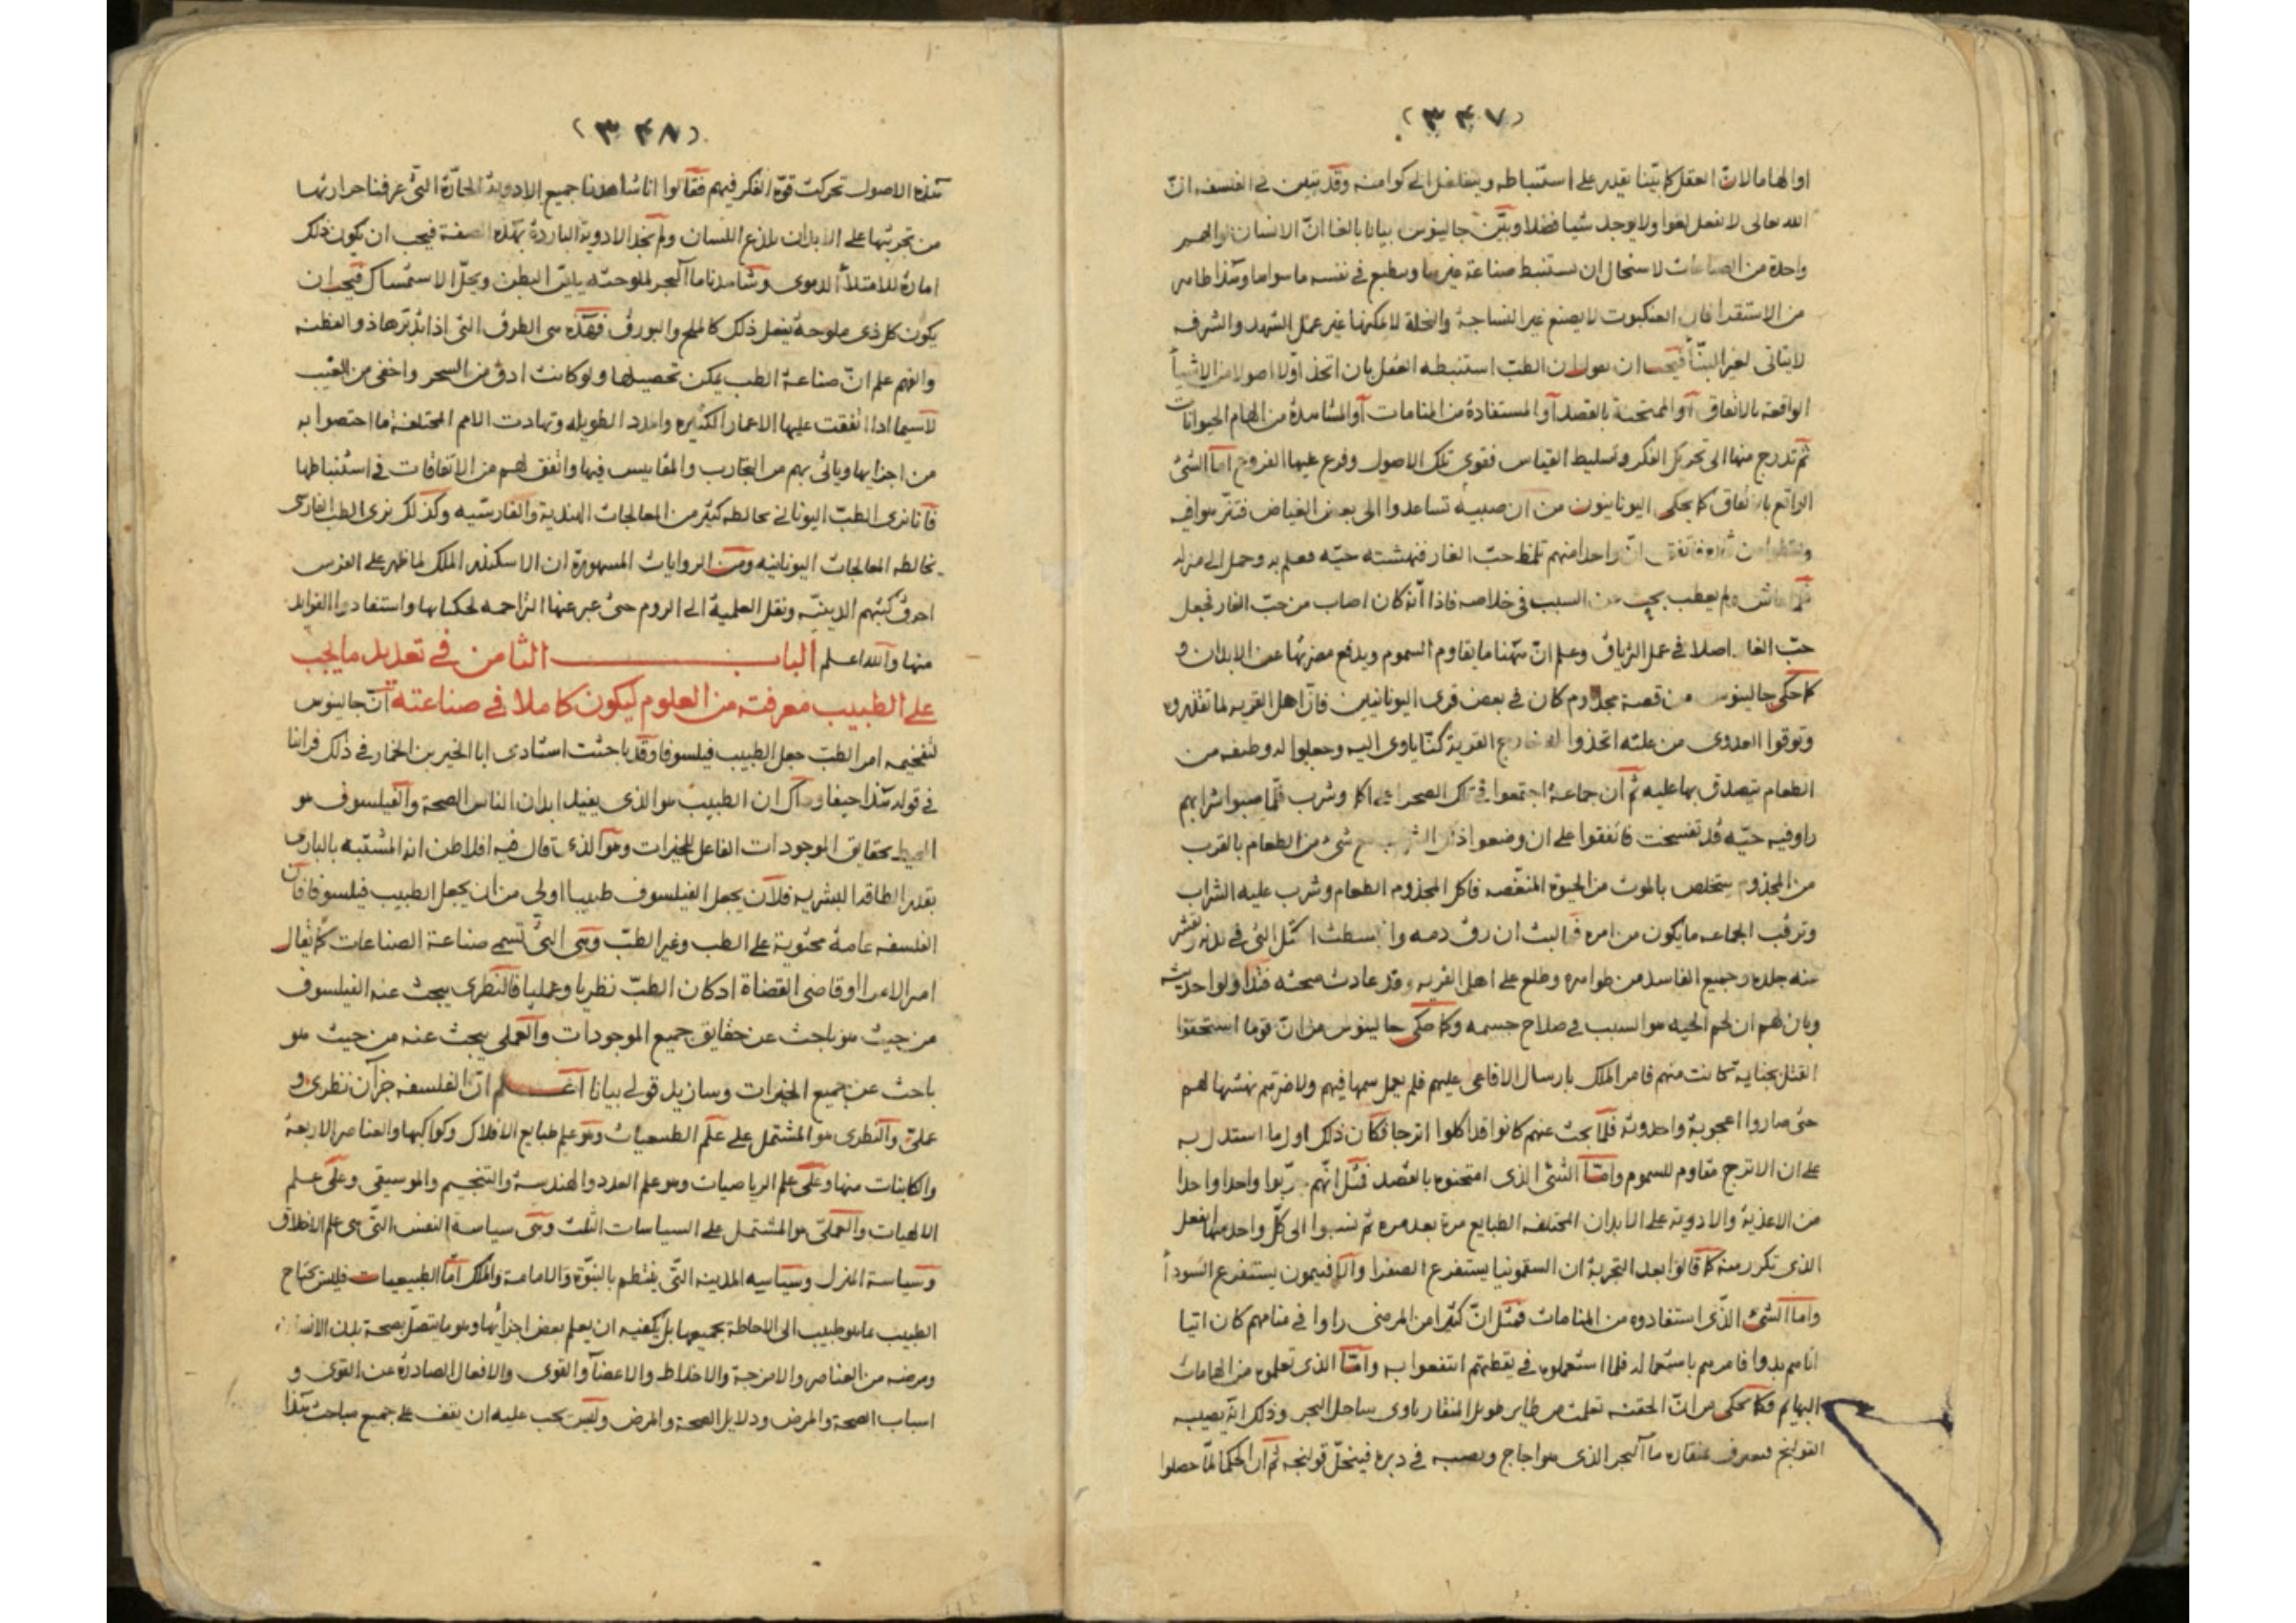 (٣٤٧)
او الهاما لان العقل كما بينا يقدر على استنباطه ويتغلغل الى كوامنه وقد تبين فى الفلسفه ان
الله تعالى لا يفعل لغوا ولا يوجد شيا فضلا وبيّن جالينوس بيانا بالغا ان الانسان
واحدة من الصناعات لاستحال ان يستنبط صناعة غيرها وينطبع فى نفسه ما سواها وهذا ظاهر
من الاستقرا فان العنكبوت لا يصنع غير النساجة والنحلة لا يمكنها غير عمل الشهد والشرف
لا يتاتى لغير البنّا فيجب ان نقول ان الطبّ استنبطه العقل بان اتخذ اولا اصولا من الاشيأ
الواقعة بالاتفاق أو الممتحنة بالقصد أو المستفادة من المنامات أو المشاهدة من الهام الحيوانات
ثم تدرج منها الى تحريك الفكر وتسليط القياس فقوى تلك الاصول وفرع عليها الفروع اما الشئ
الواقع بالاتفاق كما يحكى اليونانيون من ان صبيه تساعدوا الى بعض الغياض
ان واحدا منهم تلفظ حبّ الغار فنهشته حيّه فعلم به وحمل الى منزله
ولم يعطب بحث عن السبب فى خلاصه فاذا انه كان اصاب من حبّ الغار فجعل
حبّ الغار اصلا فى عمل الترياق وعلم ان ههنا ما يقاوم السموم ويدفع مضرتها عن الابدان و
كما حكى جالينوس من قصة مجذوم كان فى بعض قرى اليونانيين فان اهل القريه لما تقذروه
وتوقوا العدوى من علته اتخذوا له خارج القرية كنّا ياوى اليه وجعلوا له وظيفه من
الطعام يتصدق بها عليه ثم ان جماعة اجتمعوا فى تلك الصحرا على اكل وشرب فلمّا صبوا شرابهم
راوفيه حيّه قد تفسخت فاتفقوا على ان وضعوا ذلك الشراب مع شئ من الطعام بالقرب
من المجذوم يتخلص بالموت من الحيوة المنغصه فاكل المجذوم الطعام وشرب عليه الشراب
وترقب الجماعه ما يكون من امره فما لبث ان رق دمه وانبسطت الكتل التى فى بدنه وتقشر
منه جلده وجميع الفاسد من ظواهره وطلع على اهل القريه وقد عادت صحته فتداولوا حديثه
وبان لهم ان لحم الحيه هو السبب فى صلاح جسمه وكما حكى جالينوس من ان قوما استحقوا
القتل بجناية كانت منهم فامر الملك بارسال الافاعى عليهم فلم يعمل سمها فيهم ولا ضرتهم نهشها لهم
حتى صاروا اعجوبة واحدوثة فلما بحث عنهم كانوا قد اكلوا اترجا فكان ذلك اول ما استدل به
على ان الاترج مقاوم للسموم وامّا الشئ الذى امتحنوه بالقصد فمثل انهم جرّبوا واحدا واحدا
من الاغذية والادوية على الابدان المختلفه الطبايع مرة بعد مره ثم نسبوا الى كلّ واحد منها الفعل
الذى تكرر منه كما قالوا بعد التجربة ان السقمونيا يستفرغ الصفرا والافتيمون يستفرغ السودأ
واما الشئ الذى استفادوه من المنامات فمثل ان كثيرا من المرضى راوا فى منامهم كان اتيا
اتاهم بدوا فامرهم باستعماله فلما استعملوه فى يقظتهم انتفعوا به وامّا الذى تعلموه من الهامات
البهايم فكما يحكى من انّ الحقنه تعلمت من طاير طويل المنقار ياوى ساحل البحر وذلك انه يصيبه
القولنج فيغرف بمنقاره ماأ البحر الذى هو اجاج ويصبه فى دبره فينحلّ قولنجه ثم ان الحكما لمّا حصلوا
(٣٤٨)
هذه الاصول تحركت قوّة الفكر فيهم فقالوا انا شاهدنا جميع الادويه الحارّة التى عرفنا حرارتها
من تجربتها على الابدان يلذع اللسان ولم نجد الادوية الباردة بهذه الصفة فيجب ان يكون ذلك
امارة للامتلأ الدموى وشاهدنا ماأ البحر لملوحته يليّن البطن ويحلّ الاستمساك فيجب ان
يكون كل ذى ملوحة يفعل ذلك كالملح والبورق فهذه هى الطرق التى اذا تدبّرها ذو الفطنه
والفهم علم انّ صناعة الطب يمكن تحصيلها ولو كانت ادق من السحر واخفى من الغيب
لاسيما اذا اتفقت عليها الاعمار الكثيره والمدد الطويله وتهادت الامم المختلفة ما اختصوا به
من اجزايها وياتى بهم من التجارب والمقاييس فيها واتفق لهم من الاتفاقات فى استنباطها
فانا نرى الطبّ اليونانى يخالطه كثير من المعالجات الهندية والفارسيه وكذلك نرى الطب الفارسى
يخالطه المعالجات اليونانيه ومن الروايات المشهورة ان الاسكندر الملك لما ظهر على الفرس
احرق كتبهم الدينيّه ونقل العلمية الى الروم حتى عبر عنها التراجمه لحكمايها واستفادوا الفوايد
منها والله اعلم الباب الثامن فى تعديد ما يجب
على الطبيب معرفته من العلوم ليكون كاملا فى صناعته انّ جالينوس
لتفخيمه امر الطبّ جعل الطبيب فيلسوفا وقد باحثت استادى ابا الخير بن الخمار فى ذلك فراينا
فى قوله هذا حيفا وذاك ان الطبيب هو الذى يفيد ابدان الناس الصحة والفيلسوف هو
المحيط بحقايق الموجودات الفاعل للخيرات وهو الذى قال فيه افلاطن انه المشتبه بالبارى
بقدر الطاقه البشريه فلان يجعل الفيلسوف طبيبا اولى من ان يجعل الطبيب فيلسوفا فان
الفلسفه عامة محتوية على الطب وغير الطبّ وهى التى تسمى صناعة الصناعات كما يقال
امير الامرا او قاضى القضاة اذ كان الطبّ نظريا وعمليا فالنظرى يبحث عنه الفيلسوف
من حيث هو باحث عن حقايق جميع الموجودات والعملى يبحث عنه من حيث هو
باحث عن جميع الخيرات وسازيد قولى بيانا اعلم انّ الفلسفه جزآن نظرى و
عملىّ والنظرى هو المشتمل على علم الطبيعيات وهو علم طبايع الافلاك وكواكبها والعناصر الاربعة
والكاينات منها وعلى علم الرياضيات وهو علم العدد والهندسة والتنجيم والموسيقى وعلى علم
الالهيات والعملىّ هو المشتمل على السياسات الثلث وهى سياسة النفس التى هى علم الاخلاق
وسياسة المنزل وسياسه المدينه التى ينتظم بالنبوّة والامامة والملك امّا الطبيعيات فليس يحتاج
الطبيب بما هو طبيب الى الاحاطة بجميعها بل يكفيه ان يعلم بعض اجزائها وهو ما يتصل بصحة بدن الانسان
ومرضه من العناصر والامزجة والاخلاط والاعضأ والقوى والافعال الصادرة عن القوى و
اسباب الصحة والمرض ودلايل الصحة والمرض وليس يجب عليه ان يقف على جميع مباحث هذا